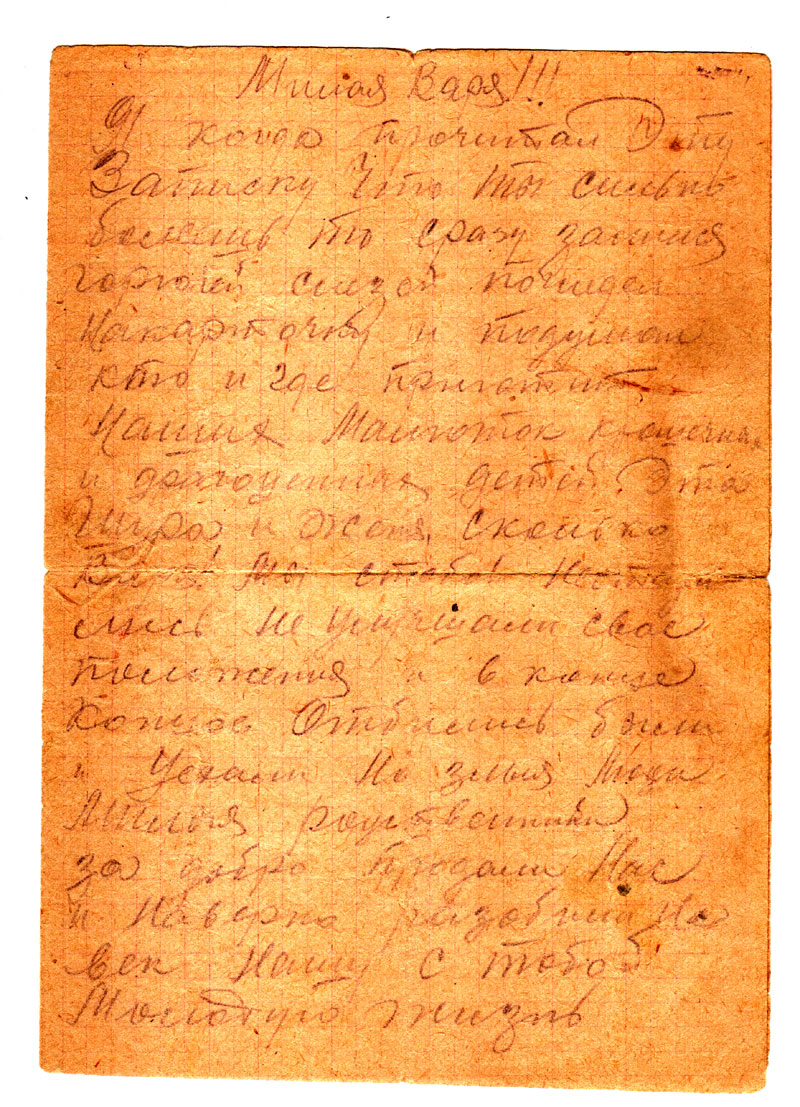 Милая Варя!!!
Я когда прочитал Эту
Записку Что ты сильно
болеешь то сразу залился
горючей слезой погледел
На карточку и подумал
кто и где приютит
Наших Малюток крошечных
и драгоценных детей. Эта
Шура и Женя, сколько
Варя! Мы с тобой Не стара
лись Не улучшали свое
положения и в конце
Концов Отбились были
и Уехали Но злыя люди
Милыя родственики
за добро продали Нас
и Наверно разобили На
век Нашу с тобой
Молодую жизнь